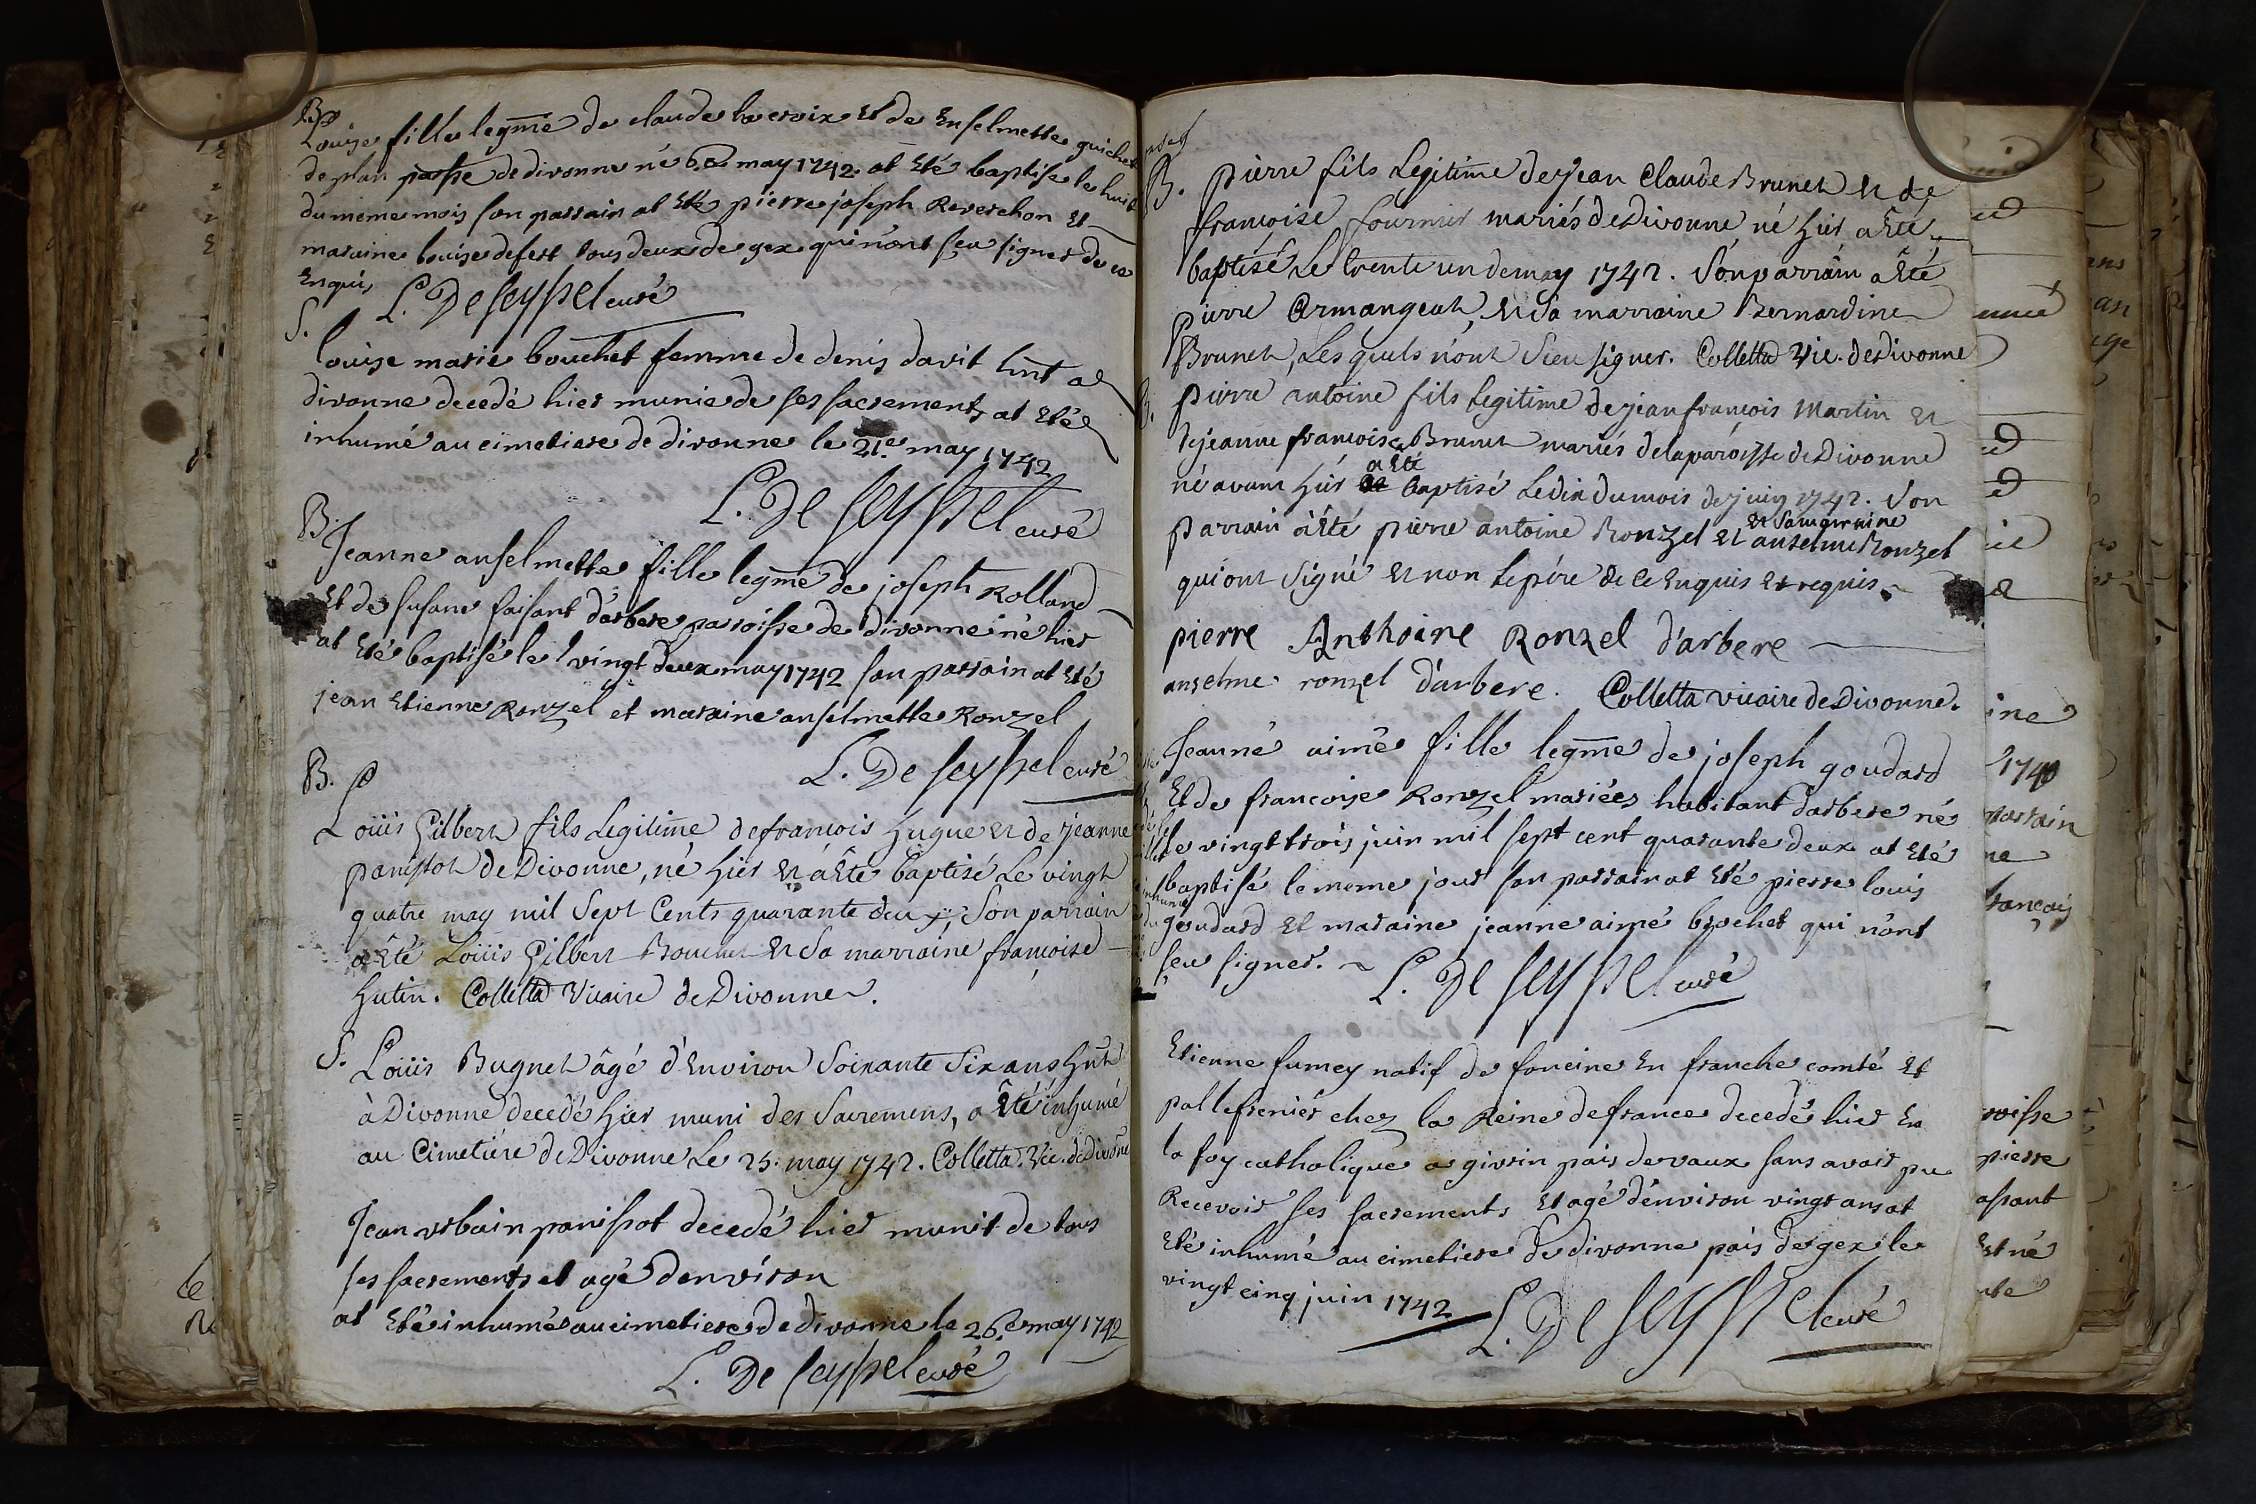 B
Louise fille legme de claude lacroix Et de Enselmette guichet
de plan de divonne né 6e may 1742. at Eté baptise le huit
du meme mois son parrain at Eté pierre joseph Reverchon Et
maraine louise defert tous deux de gex qui n'ont sçu signer de ce
Enquis
L. De seyssel curé
S.
louise marie bouchet femme de denis davit hnt a
divonne decedé hier munie de ses sacrements at Eté
inhumé au cimetiere de divonne le 21e may 1742
L. De seyssel curé
B.
Jeanne anselmette fille legme de joseph Rolland
Et de susane faisant d'arbere parroisse de divonne né hier
at Eté baptisé le vingt deux may 1742 son parrain at Eté
jean Etienne Ronzel et maraine anselmette Ronzel
L. De seyssel curé
B.
Loüis Gilbert fils Legitime de françois hugue et de jeanne
panissot de Divonne, né hier et a Eté baptisé Le vingt
quatre may mil Sept Cents quarante deux. Son parrain
a Eté Loüis Gilbert Bouchet et Sa marraine françoise
hutin. Colletta Vicaire de Divonne.
S.
Loüis Bugnet âgé d'Environ Soixante Six ans hnt
à Divonne decedé hier muni des Sacremens, a Eté inhumé
au Cimetiére de Divonne Le 25. may 1742. Colletta. Vic. de Divonne
Jean urbain panissot decedé hier munit de tous
ses sacrements et agé denviron
at Eté inhumé au cimetiere de divonne le 26e may 1742
L. De seyssel curé
B. pierre fils Legitime de jean Claude Brunet et de
françoise fournier mariés de Divonne né hier a Eté
baptisé Le trente un de may 1742. Son parrain a Eté
pierre Armangeat, et Sa marraine Bernardine
Brunet, Les quels n'ont Sceu signer. Colletta Vic. de Divonne
B. pierre antoine fils Legitime de jean françois Martin et
de jeanne françoise Brunet mariés de la paroisse de Divonne
né avant hier a Eté baptisé Le dix du mois de juin 1742. Son
parrain a Eté pierre antoine Ronzel et et Sa marraine anselme Ronzel
qui ont Signé et non Le pére de ce Enquis et requis.
pierre Anthoine Ronzel d'arbere
anselme ronzel d'arbere. Colletta vicaire de Divonne.
Jeanne aimé fille legme de joseph goudard
Et de francoise Ronzel mariées habitant darbere né
le vingt trois juin mil sept cent quarante deux at Eté
baptisé le meme jour son parrain at Eté pierre louis
goudard et maraine jeanne aimé brochet qui n'ont
sçu signer. L. De seyssel curé
Etienne fumey natif de foncine En franche comté Et
pallefrenier chez la Reine de france decedé hier En
la foy catholique a givrin pais de vaux sans avoir pu
Recevoir ses sacrements Et agé d'environ vingt ans at
Eté inhumé au cimetiere de divonne pais de gex le
vingt cinq juin 1742
L. De seyssel curé
1740